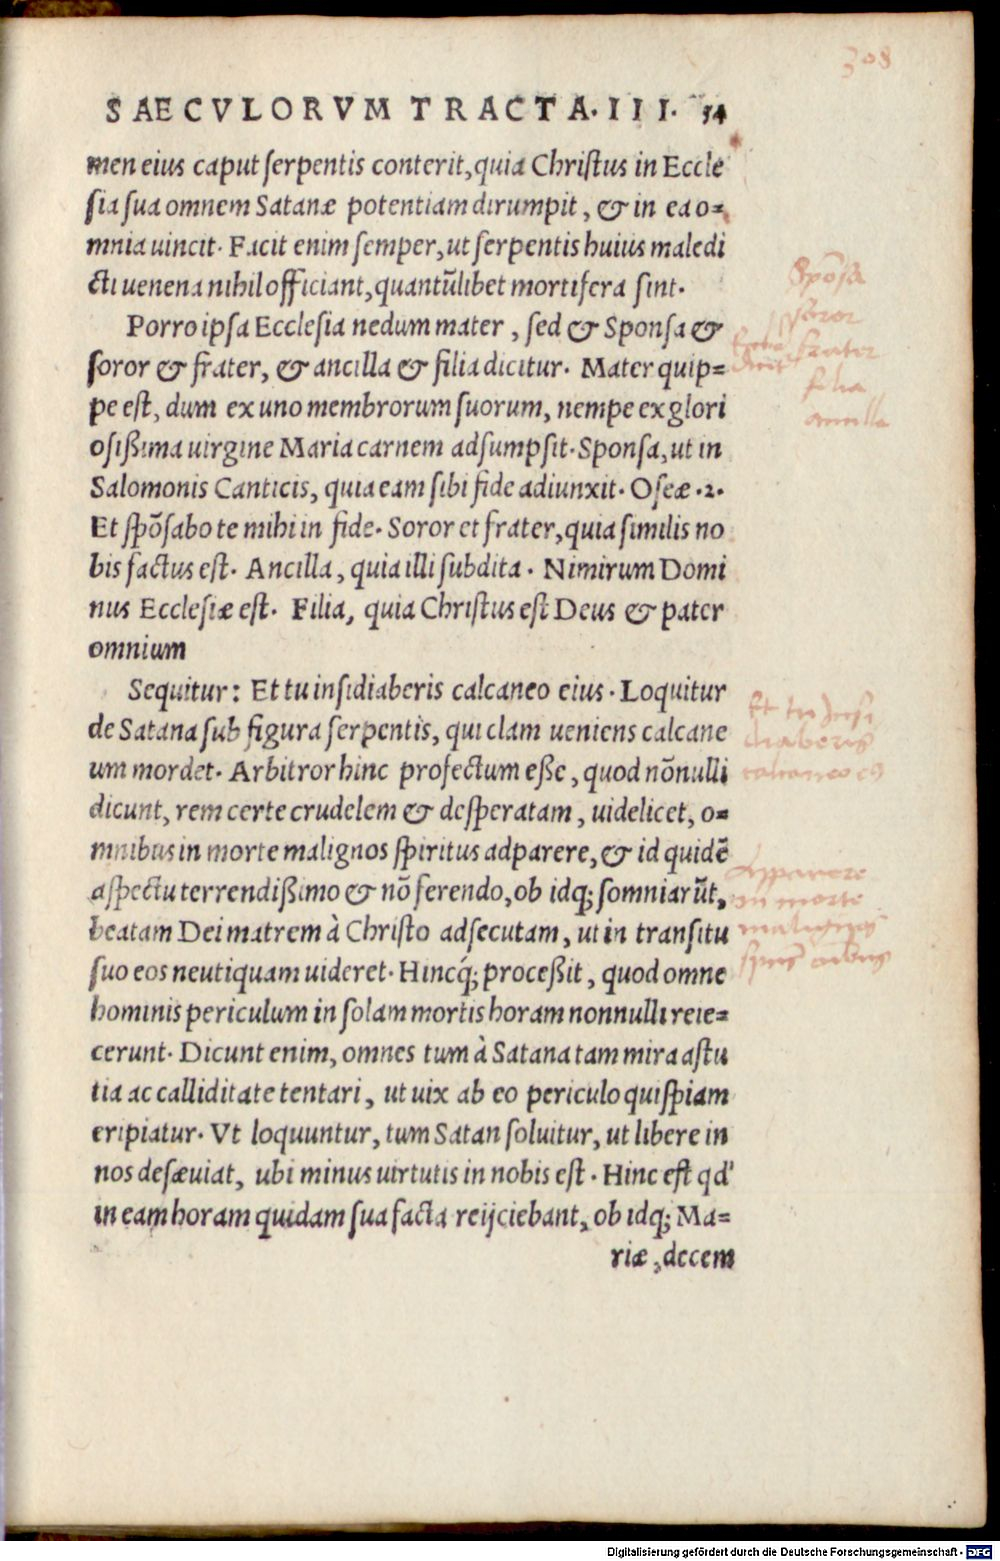 308
SAECVLORVM TRACTA. III. 54
men eius caput serpentis conterit, quia Christus in Eccle
sia sua omnem Satanæ potentiam dirumpit, & in ea o=
mnia uincit. Facit enim semper, ut serpentis huius maledi
cti uenena nihil officiant, quantũlibet mortifera sint.
Porro ipsa Ecclesia nedum mater, sed & Sponsa &
soror & frater, & ancilla & filia dicitur. Mater quip=
pe est, dum ex uno membrorum suorum, nempe ex glori
osißima uirgine Maria carnem adsumpsit. Sponsa, ut in
Salomonis Canticis, quia eam sibi fide adiunxit. Oseæ .2.
Et spõsabo te mihi in fide. Soror et frater, quia similis no
bis factus est. Ancilla, quia illi subdita. Nimirum Domi
nus Ecclesiæ est. Filia, quia Christus est Deus & pater
omnium
Sequitur: Et tu insidiaberis calcaneo eius. Loquitur
de Satana sub figura serpentis, qui clam ueniens calcane
um mordet. Arbitror hinc profectum eße, quod nõnulli
dicunt, rem certe crudelem & desperatam, uidelicet, o=
mnibus in morte malignos spiritus adparere, & id quidẽ
aspectu terrendißimo & nõ ferendo, ob idq; somniarũt,
beatam Dei matrem à Christo adsecutam, ut in transitu
suo eos neutiquam uideret. Hincq́; proceßit, quod omne
hominis periculum in solam mortis horam nonnulli reie=
cerunt. Dicunt enim, omnes tum à Satana tam mira astu
tia ac calliditate tentari, ut uix ab eo periculo quispiam
eripiatur. Vt loquuntur, tum Satan soluitur, ut libere in
nos desæuiat, ubi minus uirtutis in nobis est. Hinc est qd'
in eam horam quidam sua facta reijciebant, ob idq; Ma=
riæ, decem
Spõsa
soror
frater
filia
ancilla
Et tu insi
diaberis
calcaneo
Apparere
in morte
malignos
Digitalisierung gefördert durch die Deutsche Forschungsgemeinschaft - DFG